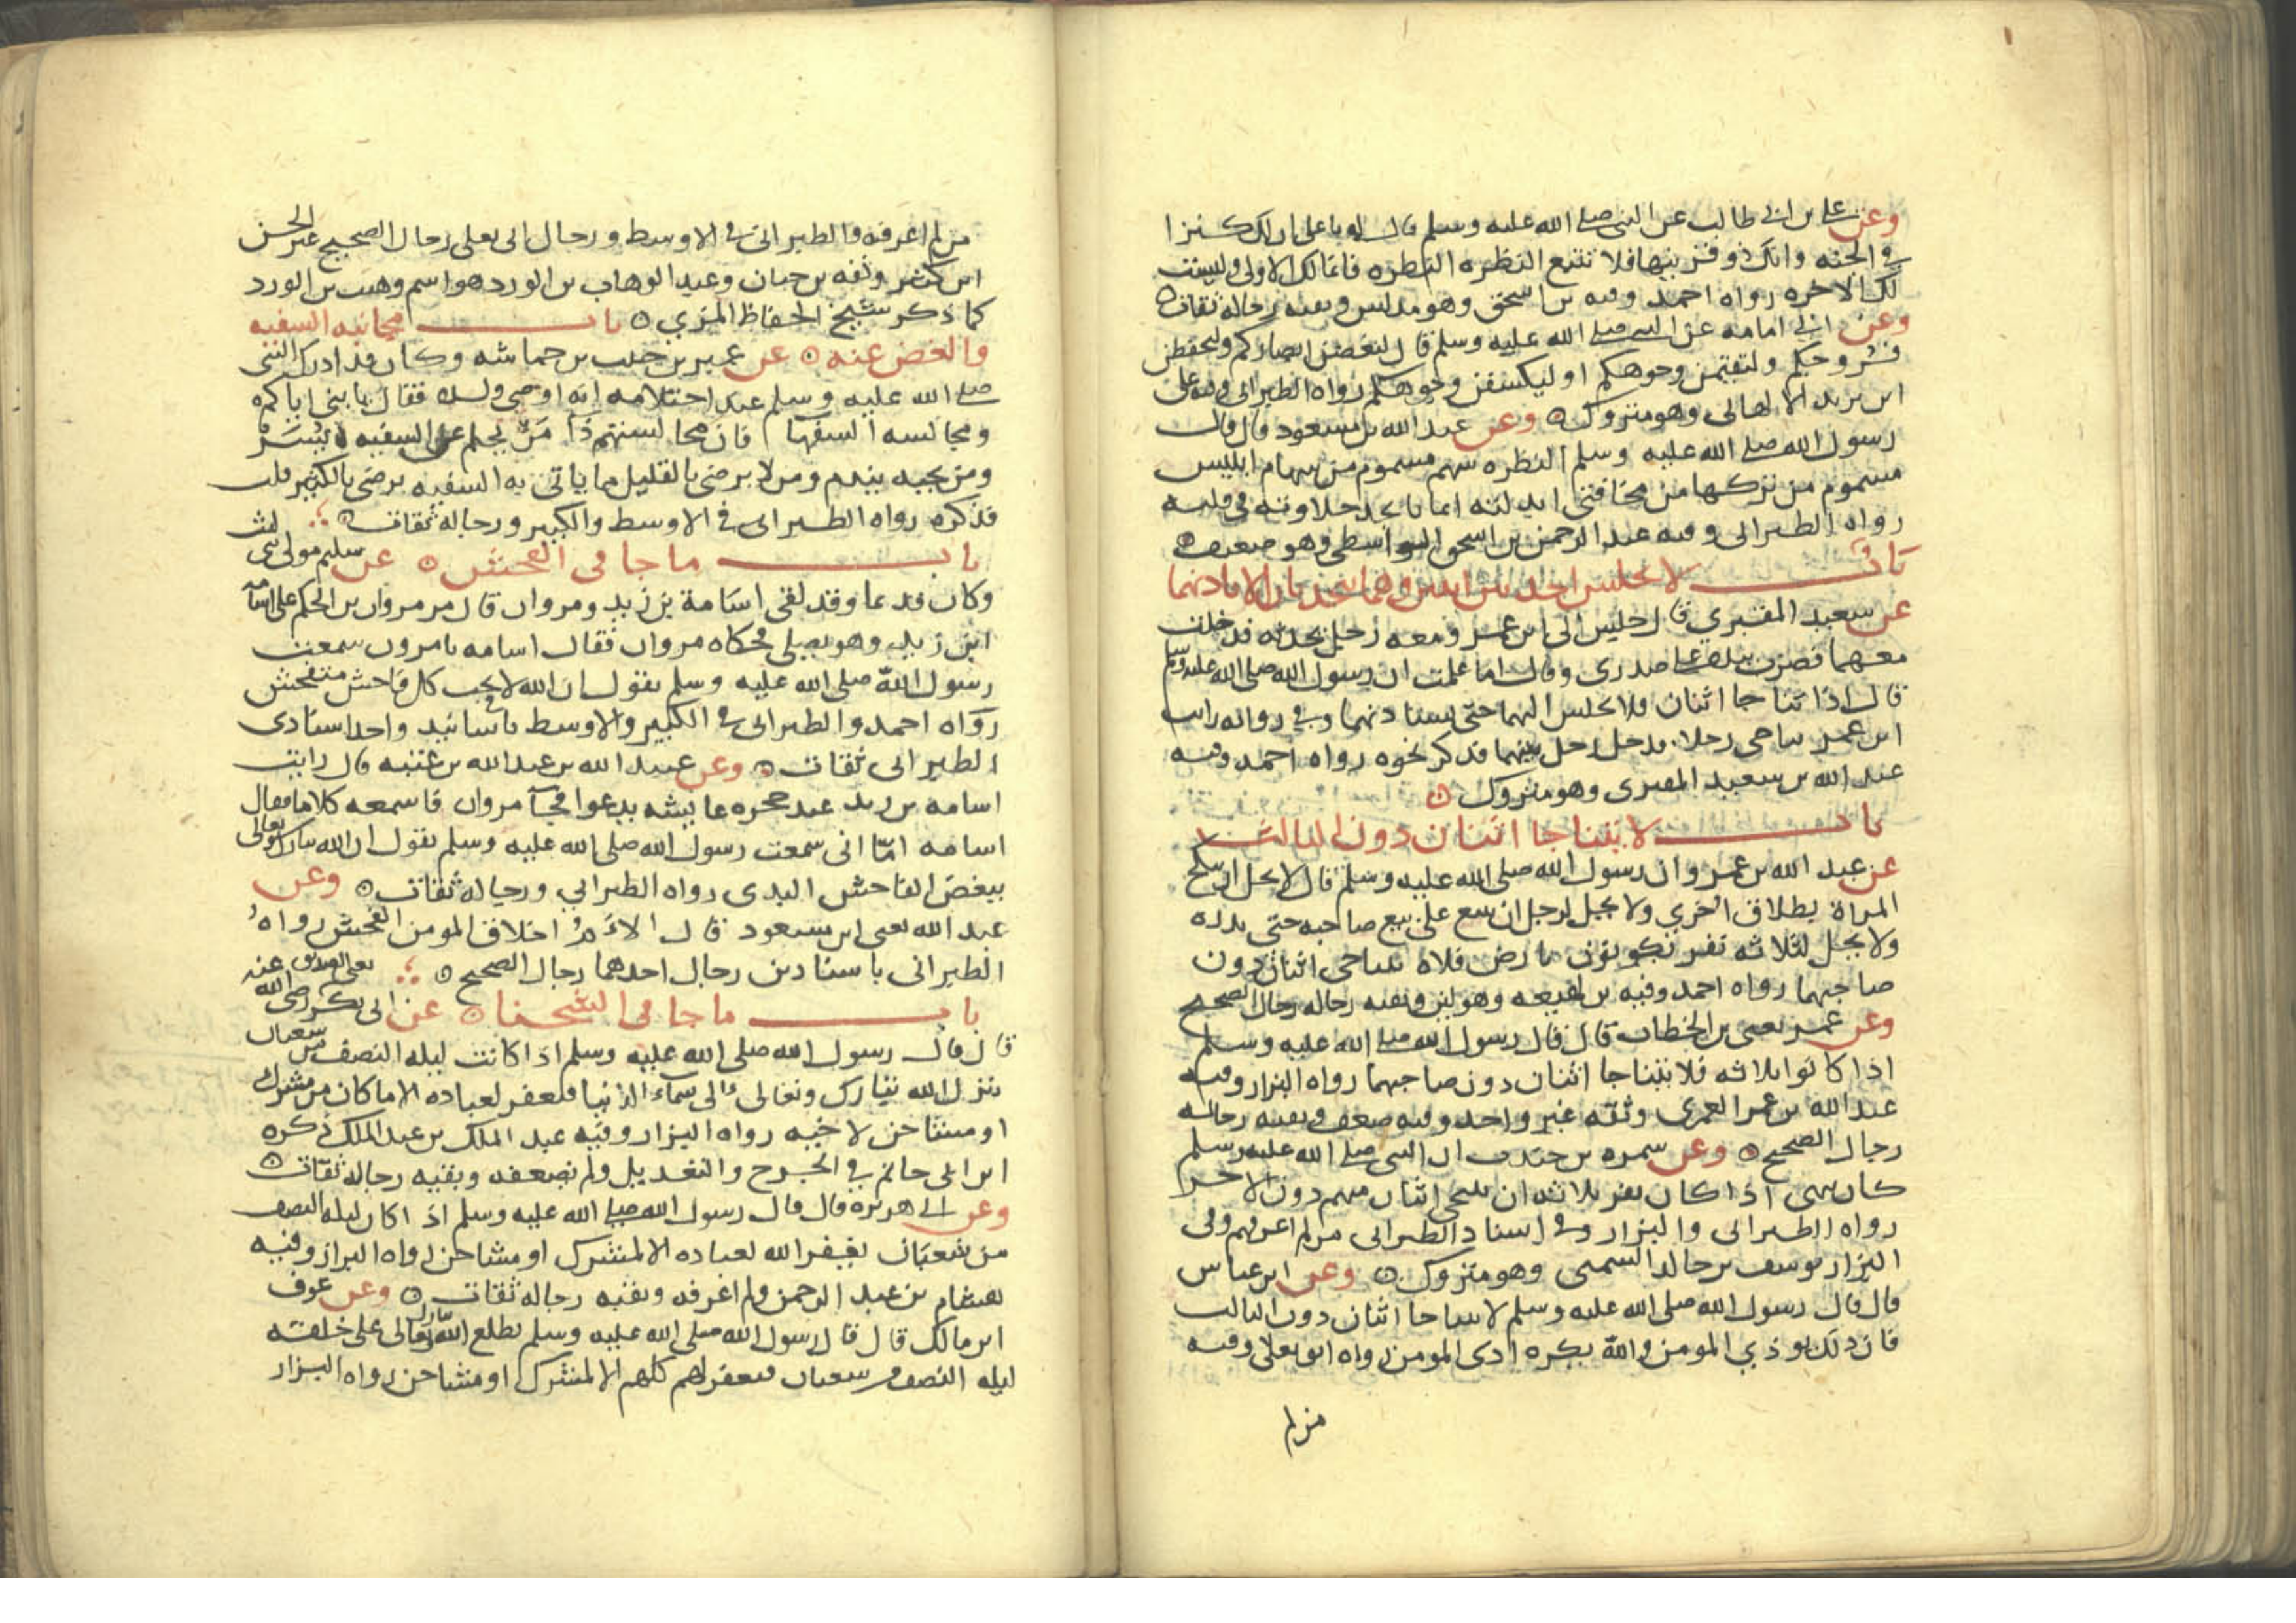 وعن علي بن ابي طالب عن النبي صلى الله عليه وسلم قال له يا علي ان لك كنزا
في الجنه وانك ذو قرنيها فلا تتبع النظره النظره فانما لك الاولى وليست
لك الاخره رواه احمد وفيه بن اسحق وهو مدلس وبقيه رجاله ثقات
وعن ابي امامه عن النبي صلى الله عليه وسلم قال لتغضن ابصاركم ولتحفظن
فروجكم ولتقيمن وجوهكم او ليكسفن وجوهكم رواه الطبراني وفيه علي
ابن يزيد الالهاني وهو متروك وعن عبد الله بن مسعود قال قال
رسول الله صلى الله عليه وسلم النظره سهم مسموم من سهام ابليس
مسموم من تركها من مخافتي ابدلته ايمانا يجد حلاوته في قلبه
رواه الطبراني وفيه عبد الرحمن بن اسحق الواسطي وهو ضعيف
باب لا يجلس احد بين اثنين وهما يتحدثان الا باذنهما
عن سعيد المقبري قال جلست الى ابن عمر ومعه رجل يحدثه فدخلت
معهما فضرب بيده على صدري وقال اما علمت ان رسول الله صلى الله عليه وسلم
قال اذا تناجا اثنان فلا تجلس اليهما حتى تستاذنهما وفي روايه رايت
ابن عمر يناجي رجلا فدخل رجل بينهما فذكر نحوه رواه احمد وفيه
عبد الله بن سعيد المقبري وهو متروك
باب لا يتناجا اثنان دون الثالث
عن عبد الله بن عمرو ان رسول الله صلى الله عليه وسلم قال لا يحل ان ينكح
المراة بطلاق اخري ولا يحل لرجل ان يبيع على بيع صاحبه حتى يذره
ولا يحل لثلاثه نفر يكونون بارض فلاه يتناجى اثنان دون
صاحبهما رواه احمد وفيه بن لهيعه وهو لين وبقيه رجاله رجال الصحيح
وعن عمر يعني بن الخطاب قال قال رسول الله صلى الله عليه وسلم
اذا كانوا ثلاثه فلا يتناجا اثنان دون صاحبهما رواه البزار وفيه
عبد الله بن عمر العمري وثقه غير واحد وفيه ضعف وبقيه رجاله
رجال الصحيح وعن سمره بن جندب ان النبي صلى الله عليه وسلم
كان ينهى اذا كان نفر ثلاثه ان ينتجي اثنان منهم دون الاخر
رواه الطبراني والبزار وفي اسناد الطبراني من لم اعرفهم وفي
البزار يوسف بن خالد السمتي وهو متروك وعن ابن عباس
قال قال رسول الله صلى الله عليه وسلم لا يتناجا اثنان دون الثالث
فان ذلك يوذي المومن والله يكره اذى المومن رواه ابو يعلى وفيه
من لم
من لم اعرفه والطبراني في الاوسط ورجال ابي يعلى رجال الصحيح غير الحسن
ابن كثير وثقه بن حبان وعبد الوهاب بن الورد هو اسم وهيب بن الورد
كما ذكر شيخ الحفاظ المزي باب مجانبه السفيه
والغض عنه عن عمير بن حبيب بن خماشه وكان قد ادرك النبي
صلى الله عليه وسلم عند احتلامه انه اوصى ولده فقال يا بني اياكم
ومجالسه السفهآ فان مجالستهم دآ من يحلم عن السفيه يسر
ومن يجبه يندم ومن لا يرضى بالقليل مما ياتي به السفيه يرضى بالكثير قلت
فذكره رواه الطبراني في الاوسط والكبير ورجاله ثقات
باب ما جا في الفحش عن سليم مولى ليث
وكان قديما وقد لقي اسامة بن زيد ومروان قال مر مروان بن الحكم على اسامه
ابن زيد وهو يصلي فحكاه مروان فقال اسامه يا مرون سمعت
رسول الله صلى الله عليه وسلم يقول ان الله لا يحب كل فاحش متفحش
رواه احمد والطبراني في الكبير والاوسط باسانيد واحد اسنادي
الطبراني ثقات وعن عبيد الله بن عبد الله بن عتبه قال رايت
اسامه بن زيد عند حجره عايشه يدعوا فجآ مروان فاسمعه كلاما فقال
اسامه امّا اني سمعت رسول الله صلى الله عليه وسلم يقول ان الله تبارك وتعالى
يبغض الفاحش البذي رواه الطبراني ورجاله ثقات وعن
عبد الله يعني ابن مسعود قال الام اخلاق المومن الفحش رواه
الطبراني باسنادين رجال احدهما رجال الصحيح
باب ما جا في الشحنا عن ابي بكر يعني الصديق رضي الله عنه
قال قال رسول الله صلى الله عليه وسلم اذا كانت ليله النصف من شعبان
ينزل الله تبارك وتعالى الى سمآء الدنيا فيغفر لعباده الا ما كان من مشرك
او مشاحن لاخيه رواه البزار وفيه عبد الملك بن عبد الملك ذكره
ابن ابي حاتم في الجرح والتعديل ولم يضعفه وبقيه رجاله ثقات
وعن ابي هريره قال قال رسول الله صلى الله عليه وسلم اذا كان ليله النصف
من شعبان يغفر الله لعباده الا لمشرك او مشاحن رواه البزار وفيه
هشام بن عبد الرحمن ولم اعرفه وبقيه رجاله ثقات وعن عوف
ابن مالك قال قال رسول الله صلى الله عليه وسلم يطلع الله تبارك وتعالى على خلقه
ليله النصف من شعبان فيغفر لهم كلهم الا لمشرك او مشاحن رواه البزار